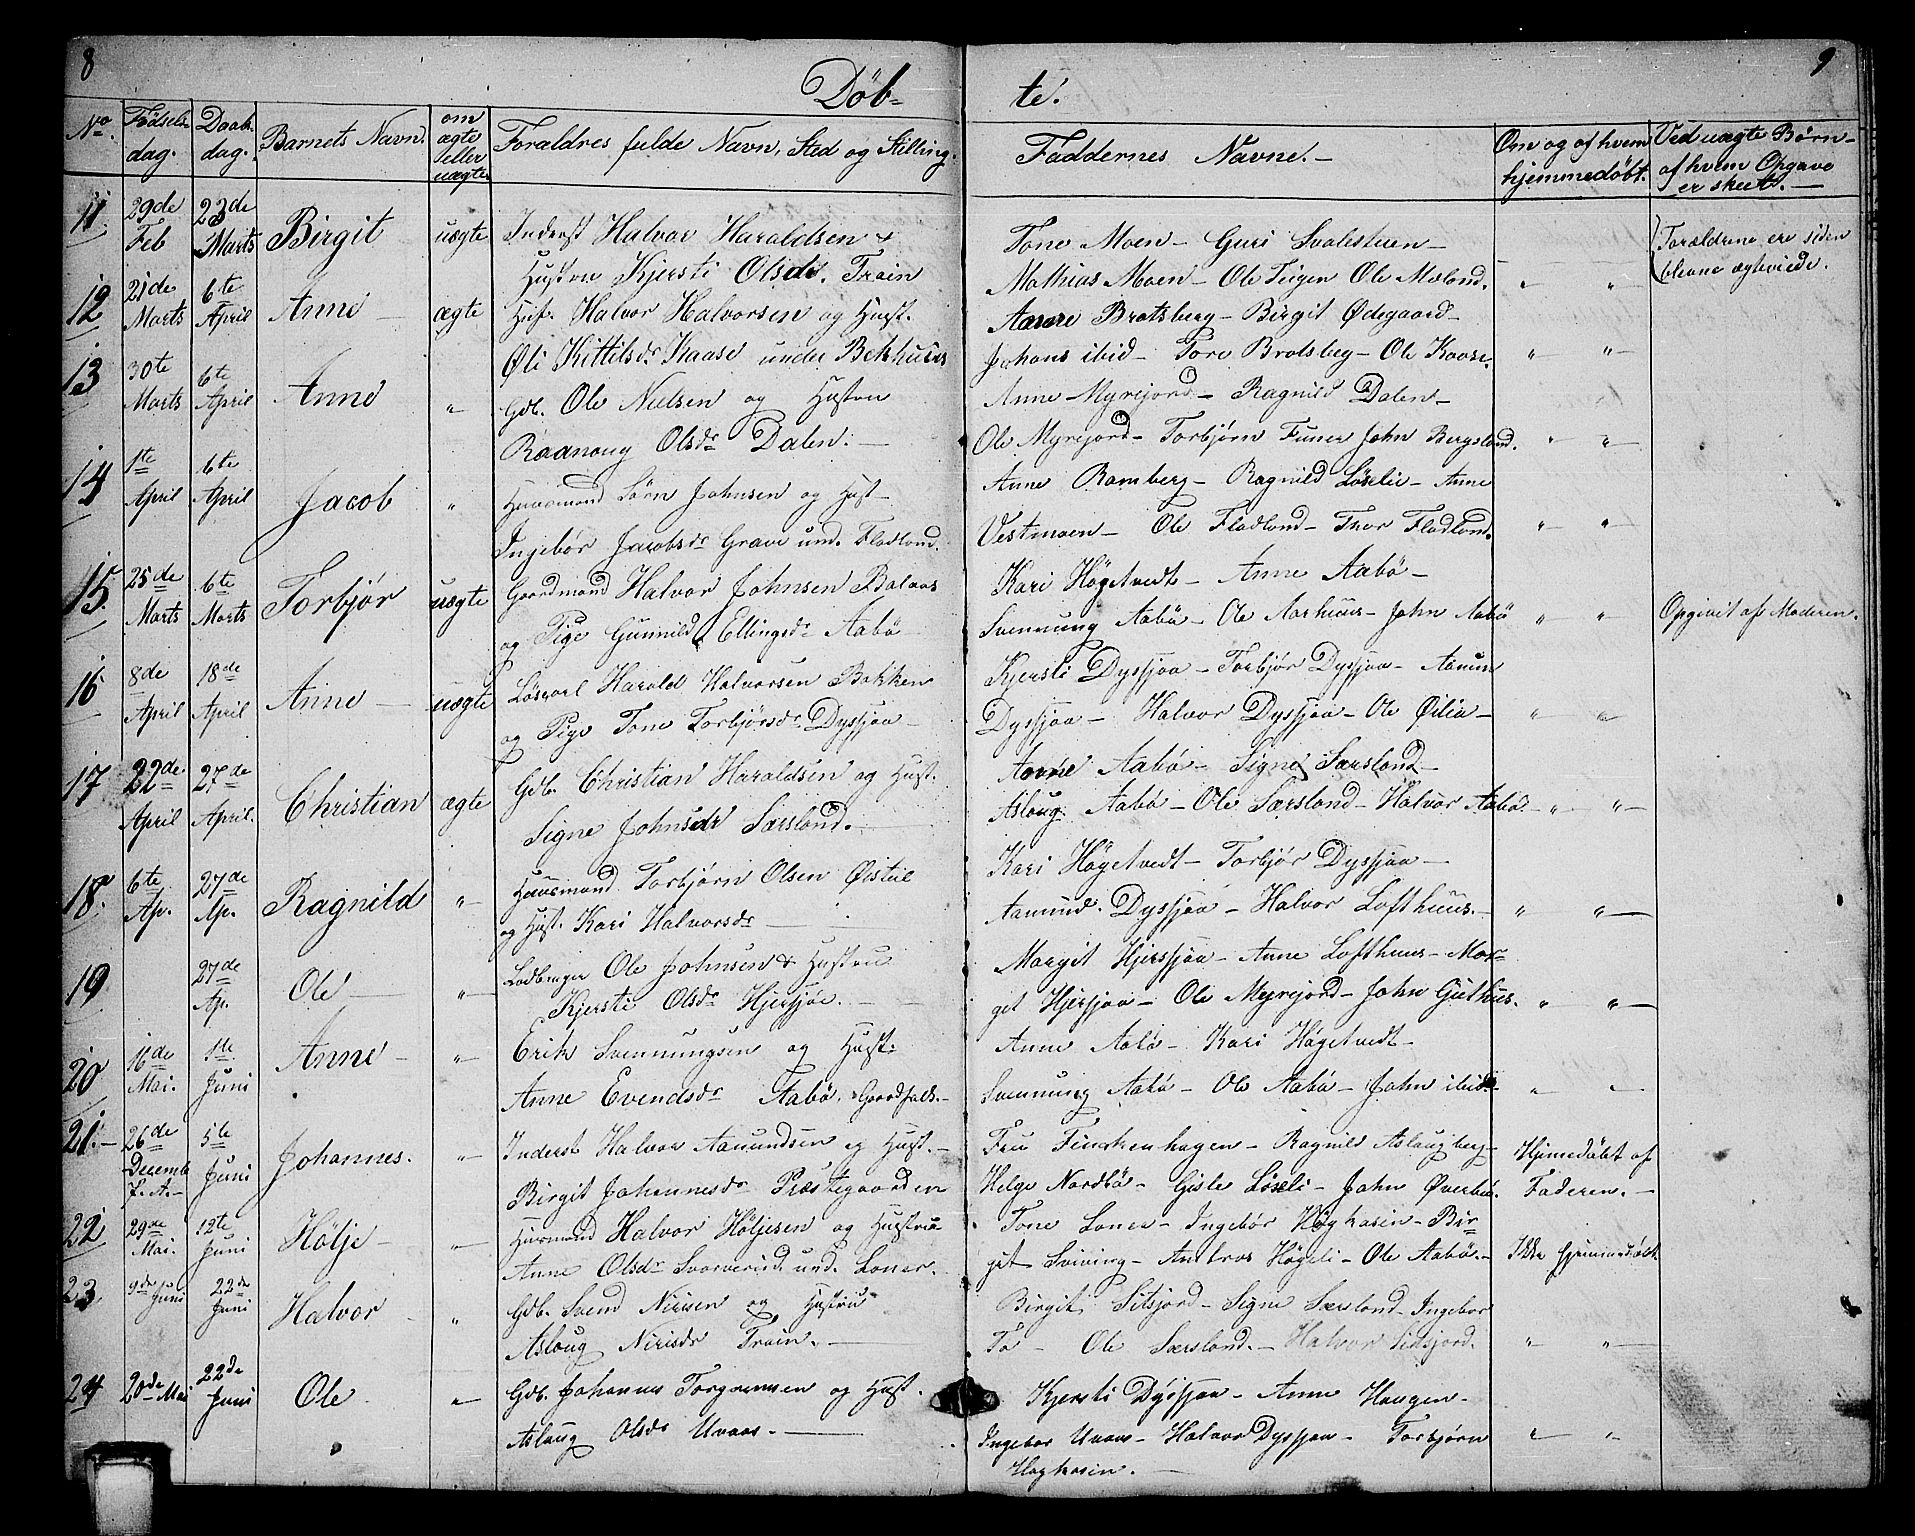 8
9
Döb-
te.
No.
Fødsels-
dag.
Daab.
dag.
Barnets Navn.
om
ægte
eller
uægte.
Foraldres fulde Navn, Sted og Stilling.
Faddernes Navne. -
Om og af hvem
hjemmedøbt.
Ved uægte Børn
af hvem Opgave
er skeet. -
11.
29de
Feb
23de
Marts
Birgit
uægte
Inderst Halvor Haraldsen &
Hustru Kjersti Olsdr. Train
Tone Moen - Guri Svalestuen -
Mathias Moen - Ole Teigen Ole Mæland.
Forældrene ere siden
blevne ægteviede.
12
21de
Marts
6te
April
Anne -
ægte
Huf. Halvor Halvorsen og Hust.
Øli Kittilsdr Kaase under Bekhuus
Aavere Bratsberg - Birgit Ødegaard -
Johans ibid - Tore Bratsberg - Ole Kaase.
" "
13
30te
Marts
6te
April
Anne
"
Gdb. Ole Nielsen og Hustru
Raanoug Olsdr Dalen. -
Anne Myrejord - Ragnild Dalen -
Ole Myrejord - Torbjørn Funer John Bergsland.
" "
14
1te
April
6te
April
Jacob
"
Huusmand Sørn Johnsen og Hust -
Ingebør Jacobsdr Grave und. Fladland.
Anne Ramberg - Ragnild Löselie - Anne
Vestmoen - Ole Fladland - Thor Fladland.
" "
15.
25de
Marts
6te
Marts
Torbjør
uægte
Gaardmand Halvor Johnsen Balaas
og Pige Gunnild Ellingsdr Aabö -
Kari Högetvedt - Anne Aabö -
Svennung Aabö - Ole Aarhuus - John Aabö
" "
Opgivet af Moderen.
16
8de
April
18de
April
Anne -
uægte
Löskarl Harald Halvorsen Bakken
og Pige Tone Torbjørsdr Dyssjaa -
Kjersti Dyssjaa - Torbjör Dyssjaa - Aamun
Dyssjaa - Halvor Dyssjaa - Ole Øilia -
" "
17
22de
April
27de
April.
Christian
ægte
Gdb. Christian Haraldsen og Hust.
Signe Johnsdr Særsland. -
Anne Aabö - Signe Særsland -
Aslaug Aabö - Ole Særsland - Halvor Aabö
" "
18.
6te
Ap.
27de
Ap.
Ragnild
"
Huusmand Torbjørn Olsen Øisteil
og Hust. Kari Halvorsdr -
Kari Högetvedt - Torbjör Dyssjaa -
Aamund Dyssjaa - Halvor Lofthuus. -
" "
19
27de
Ap.
Ole -
"
Ladbruger Ole Johnsen & Hustru
Kjersti Olsdr Hjersjøe. -
Margit Hjersjaa - Anne Lofthuus - Mar-
get Hjersjaa - Ole Myrejord - John Guthus.
" "
20
16de
Mai.
1te
Juni
Anne -
"
Erik Svennungsen og Hust.
Anne Evendsdr Aabö. Gaardfolk. -
Anne Aabö - Kari Högetvedt -
Svennung Aabö - Ole Aabö - John ibid -
"
21. -
26de
Decemb
F. A. -
5te
Juni
Johannes.
"
Inderst Halvor Aamundsen og Hust. -
Birgit Johannesdr Præstegaarden
Fru Finckenhagen - Ragnild Aslaugberg -
Helge Nordbö - Gisle Löseli - John Øverbö.
Hjmedöbt af
Faderen. -
22
29de
Mai.
12te
Juni
Hölje -
"
Husmand Halvor Höljesen og Hustru
Anne Olsdr Svarverud und. Loner.
Tone Loner - Ingebör Höghasin - Bir-
get Sviving - Ambros Högeli - Ole Aabö. -
Ikke hjemmedöbt.
23
9de Juni
22de
Juni
Halvor
"
Gdb. Svend Nirisen og Hustru
Aslaug Nirisdr Train. -
Birgit Sitsjord - Signe Særsland - Ingebor
To - Ole Særsland. - Halvor Sitsjord.
" "
24
20de Mai
22de
Juni
Ole
"
Gdb. Johannes Torgrimsen og Hust.
Aslaug Olsdr Uvaas. -
Kjersti Dyssjaa - Anne Haugen -
Ingebor Uvaas - Halvor Dyssjaa - Torbjørn
Höghasin. -
" "